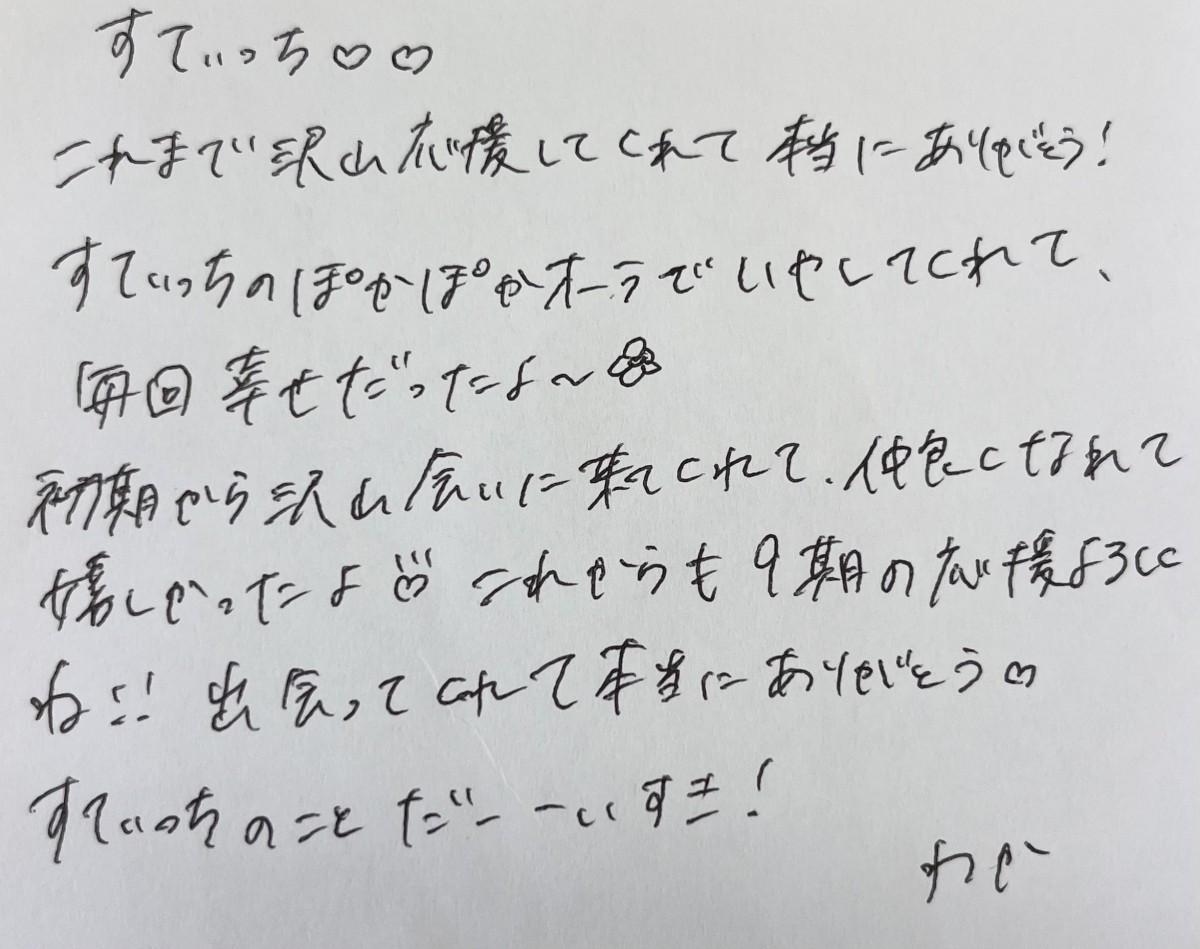 すてぃっち♡♡
これまで沢山応援してくれて本当にありがとう!
すてぃっちのぽかぽかオーラでいやしてくれて、
毎回幸せだったよ〜
初期から沢山会いに来てくれて、仲良くなれて
嬉しかったよ これからも9期の応援よろしく
ね!! 出会ってくれて本当にありがとう♡
すてぃっちのことだーーいすき!
わか